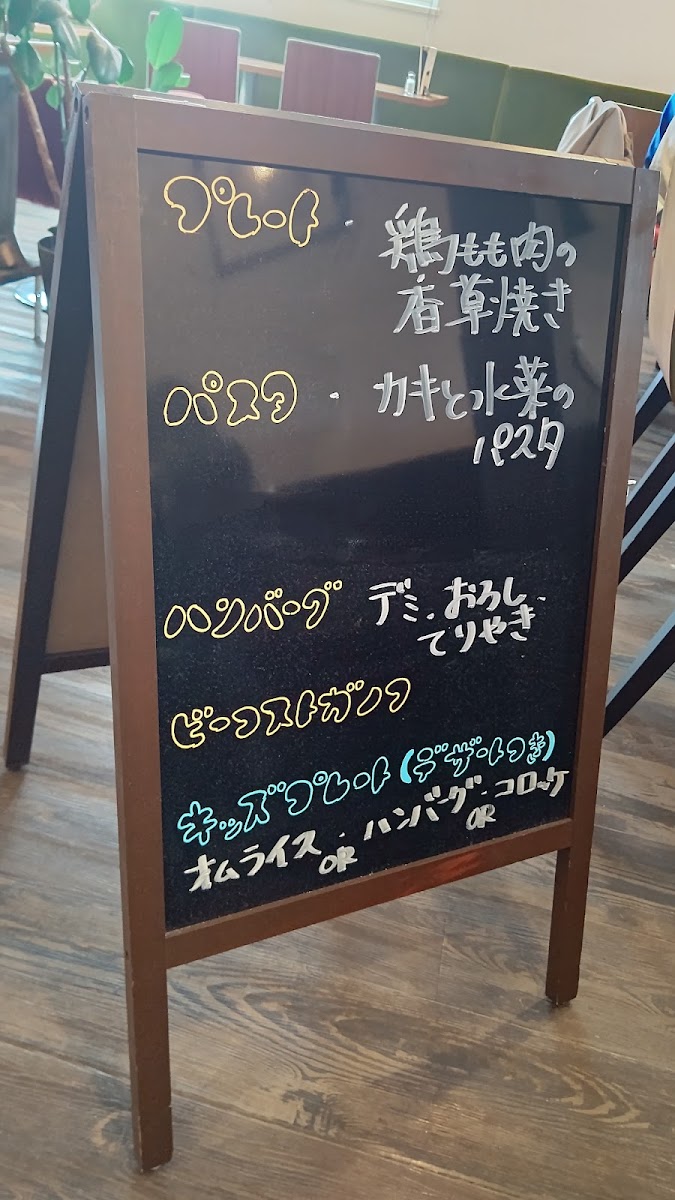 プレート・鶏もも肉の
香草焼き
パスタ・カキと水菜の
パスタ
ハンバーグ デミ・おろし・
てりやき
ビーフストガノフ
キッズプレート(デザートつき)
オムライス・ハンバーグ・コロッケ
OR OR